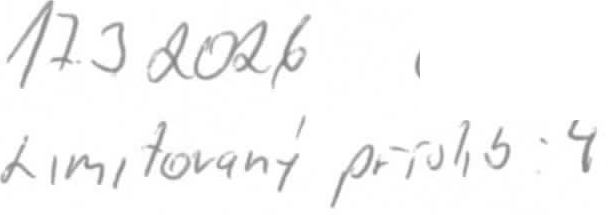 17.3 2026
Limitovaný příslib : 4